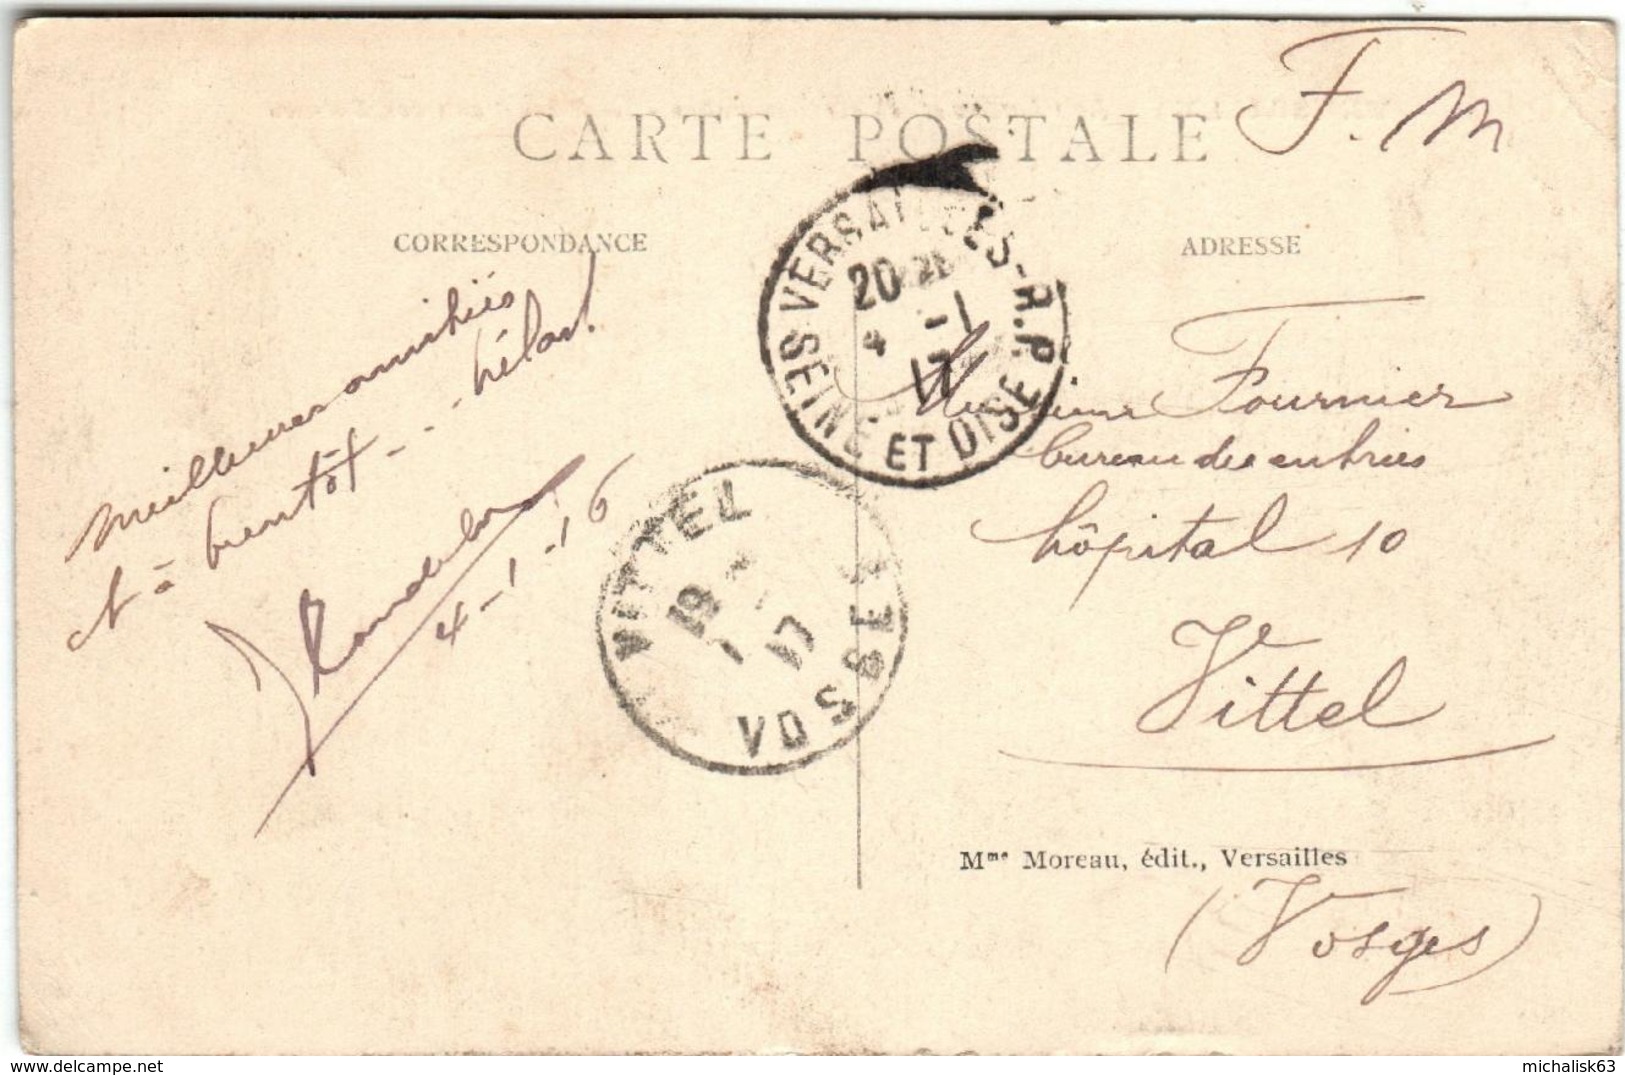 F. M
CARTE POSTALE
CORRESPONDANCE
ADRESSE
Meilleures amitiés
et à bientôt - - - hélas!
4-1-16
VERSAILLES - R.P.
20
4 -1
17
SEINE ET OISE
VITTEL
19
17
VOSGES
Fournier
bureau des entrées
hôpital 10
Vittel
Mme Moreau, édit., Versailles
(Vosges)
michalisk63